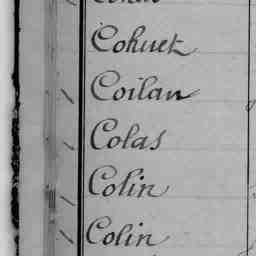 Cohuet
Coilan
Colas
Colin
Colin